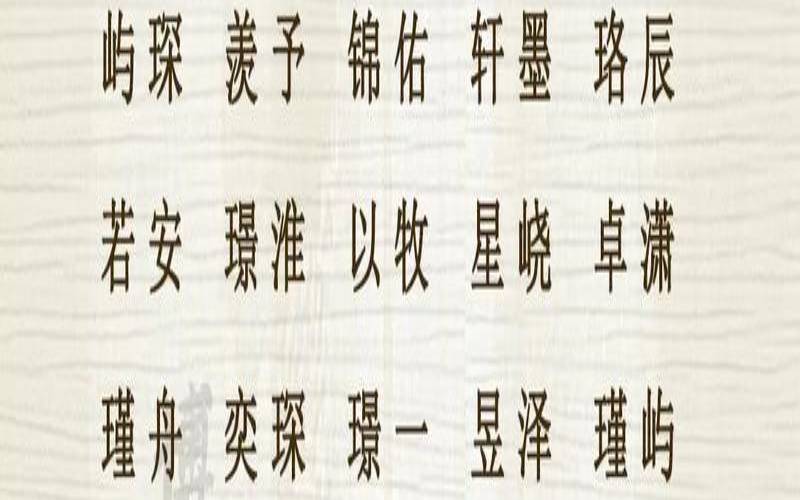 屿琛 羡予 锦佑 轩墨 珞辰
若安 璟淮 以牧 星峣 卓潇
瑾舟 奕琛 璟一 昱泽 瑾屿